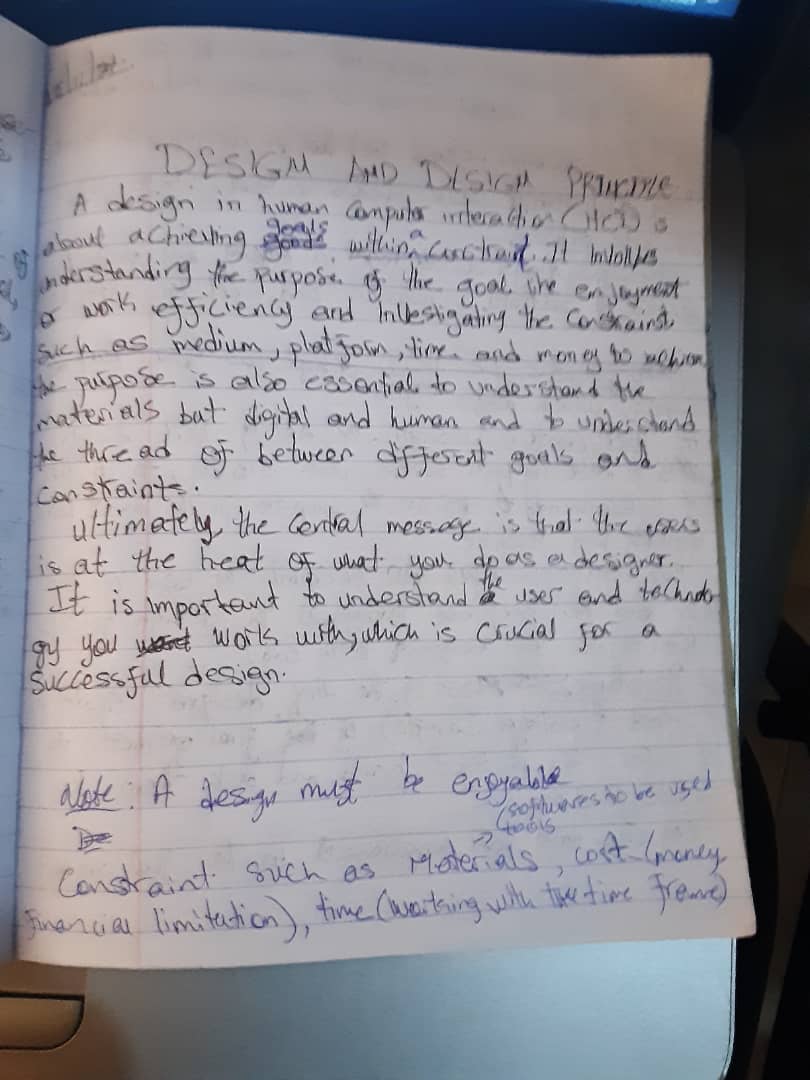 DESIGN AND DESIGN PRINCIPLE
A design in human computer interaction (HCI) is
about achieving goals within a constraint. It involves
understanding the purpose of the goal the enjoyment
or work efficiency and investigating the constraint
such as medium, platform, time and money to achieve
the purpose is also essential to understand the
materials but digital and human and to understand
the thread of between different goals and
constraints.
ultimately, the central message is that the users
is at the heat of what you do as a designer.
It is important to understand the user and technolo
gy you work with, which is crucial for a
successful design.
Note: A design must be enjoyable
(softwares to be used
tools
Constraint such as Materials, cost (money
financial limitation), time (working with the time frame)